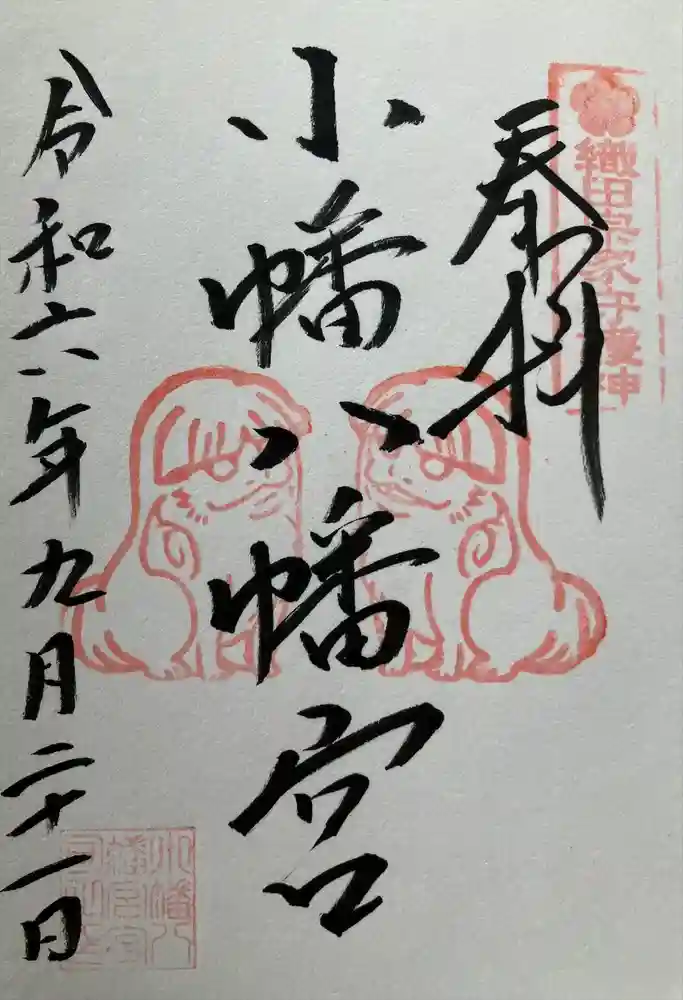 織田宗家守護神
奉拝
小幡八幡宮
令和六年九月二十一日
小幡八
幡宮宮
司之印